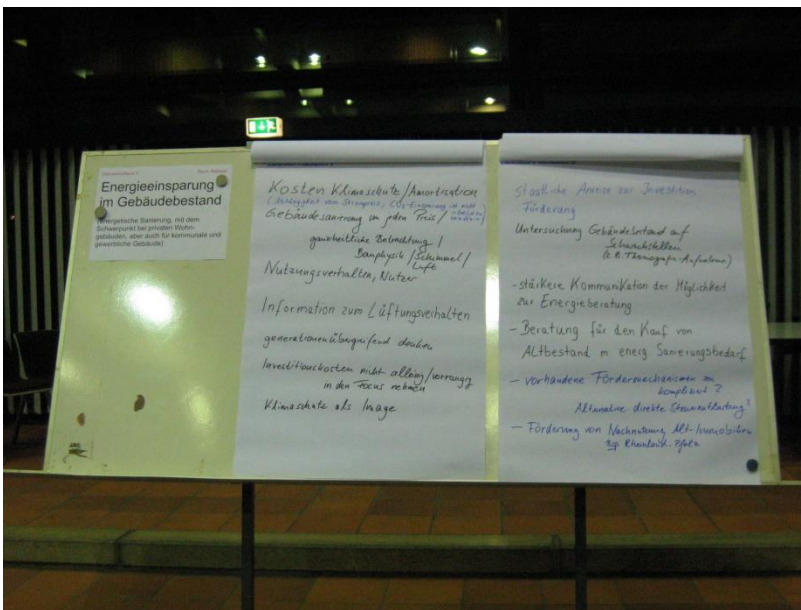 Energieeinsparung
im Gebäudebestand
(energetische Sanierung, mit dem
Schwerpunkt bei privaten Wohn-
gebäuden, aber auch für kommunale und
gewerbliche Gebäude)
Kosten Klimaschutz/Amortisation
(Abhängigkeit vom Strompreis, CO2-Einsparung ist nicht
Gebäudesanierung um jeden Preis/
ganzheitliche Betrachtung/
Bauphysik/Schimmel/
Luft
Nutzungsverhalten, Nutzer
Information zum Lüftungsverhalten
generationenübergreifend denken
Investitionskosten nicht allein/vorrangig
in den Focus nehmen
Klimaschutz als Image
staatliche Anreize zur Investition
Förderung
Untersuchung Gebäudebestand auf
Schwachstellen
(z.B. Thermografie-Aufnahme)
- stärkere Kommunikation der Möglichkeit
zur Energieberatung
- Beratung für den Kauf von
Altbestand m energ. Sanierungsbedarf
- vorhandene Fördermechanismen zu
kompliziert?
Alternative direkte Steuerentlastung?
- Förderung von Nachnutzung Alt-Immobilien
Bsp. Rheinland-Pfalz